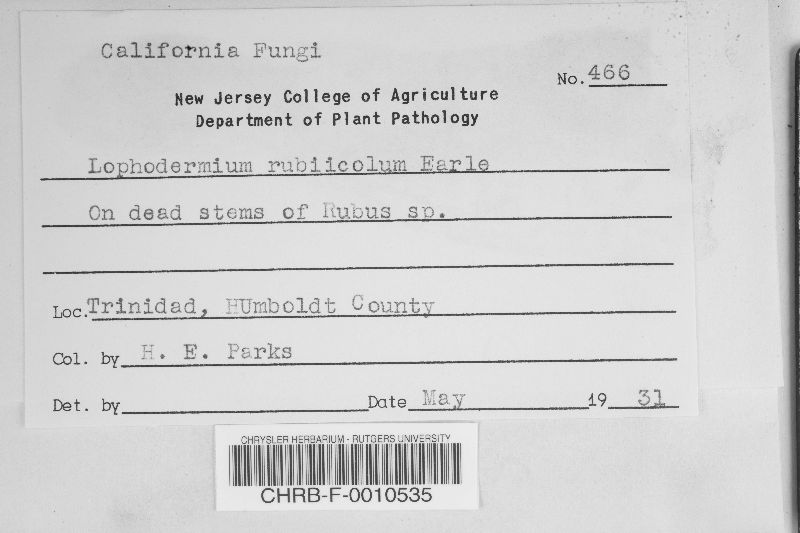 California Fungi
No. 466
New Jersey College of Agriculture
Department of Plant Pathology
Lophodermium rubiicolum Earle
On dead stems of Rubus sp.
Loc. Trinidad, HUmboldt County
Col. by H. E. Parks
Det. by Date May 19 31
CHRYSLER HERBARIUM - RUTGERS UNIVERSITY
CHRB-F-0010535